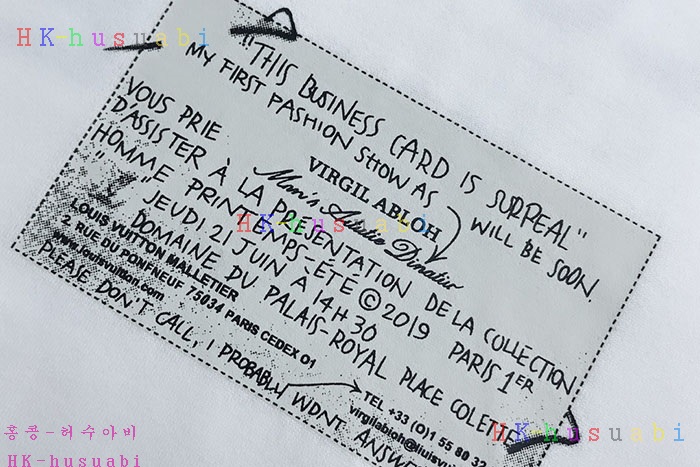 HK-husuabi
"THIS BUSINESS CARD IS SURREAL"
MY FIRST FASHION SHOW AS WILL BE SOON.
VIRGIL ABLOH
Men's Artistic Director
VOUS PRIE
D'ASSISTER À LA PRÉSENTATION DE LA COLLECTION
"HOMME" PRINTEMPS-ÉTÉ © 2019 PARIS 1ER
"JEUDI 21 JUIN À 14H30
DOMAINE DU PALAIS-ROYAL PLACE COLETTE
LOUIS VUITTON MALLETIER
2 RUE DU PONFNEUF 75034 PARIS CEDEX 01
www.louisvuitton.com
PLEASE DON'T CALL, I PROBABLY WONT ANSWE
TEL +33 (0)1 55 80 32
virgilabloh@
HK-husuabi
HK-husuabi
홍콩-허수아비
HK-husuabi